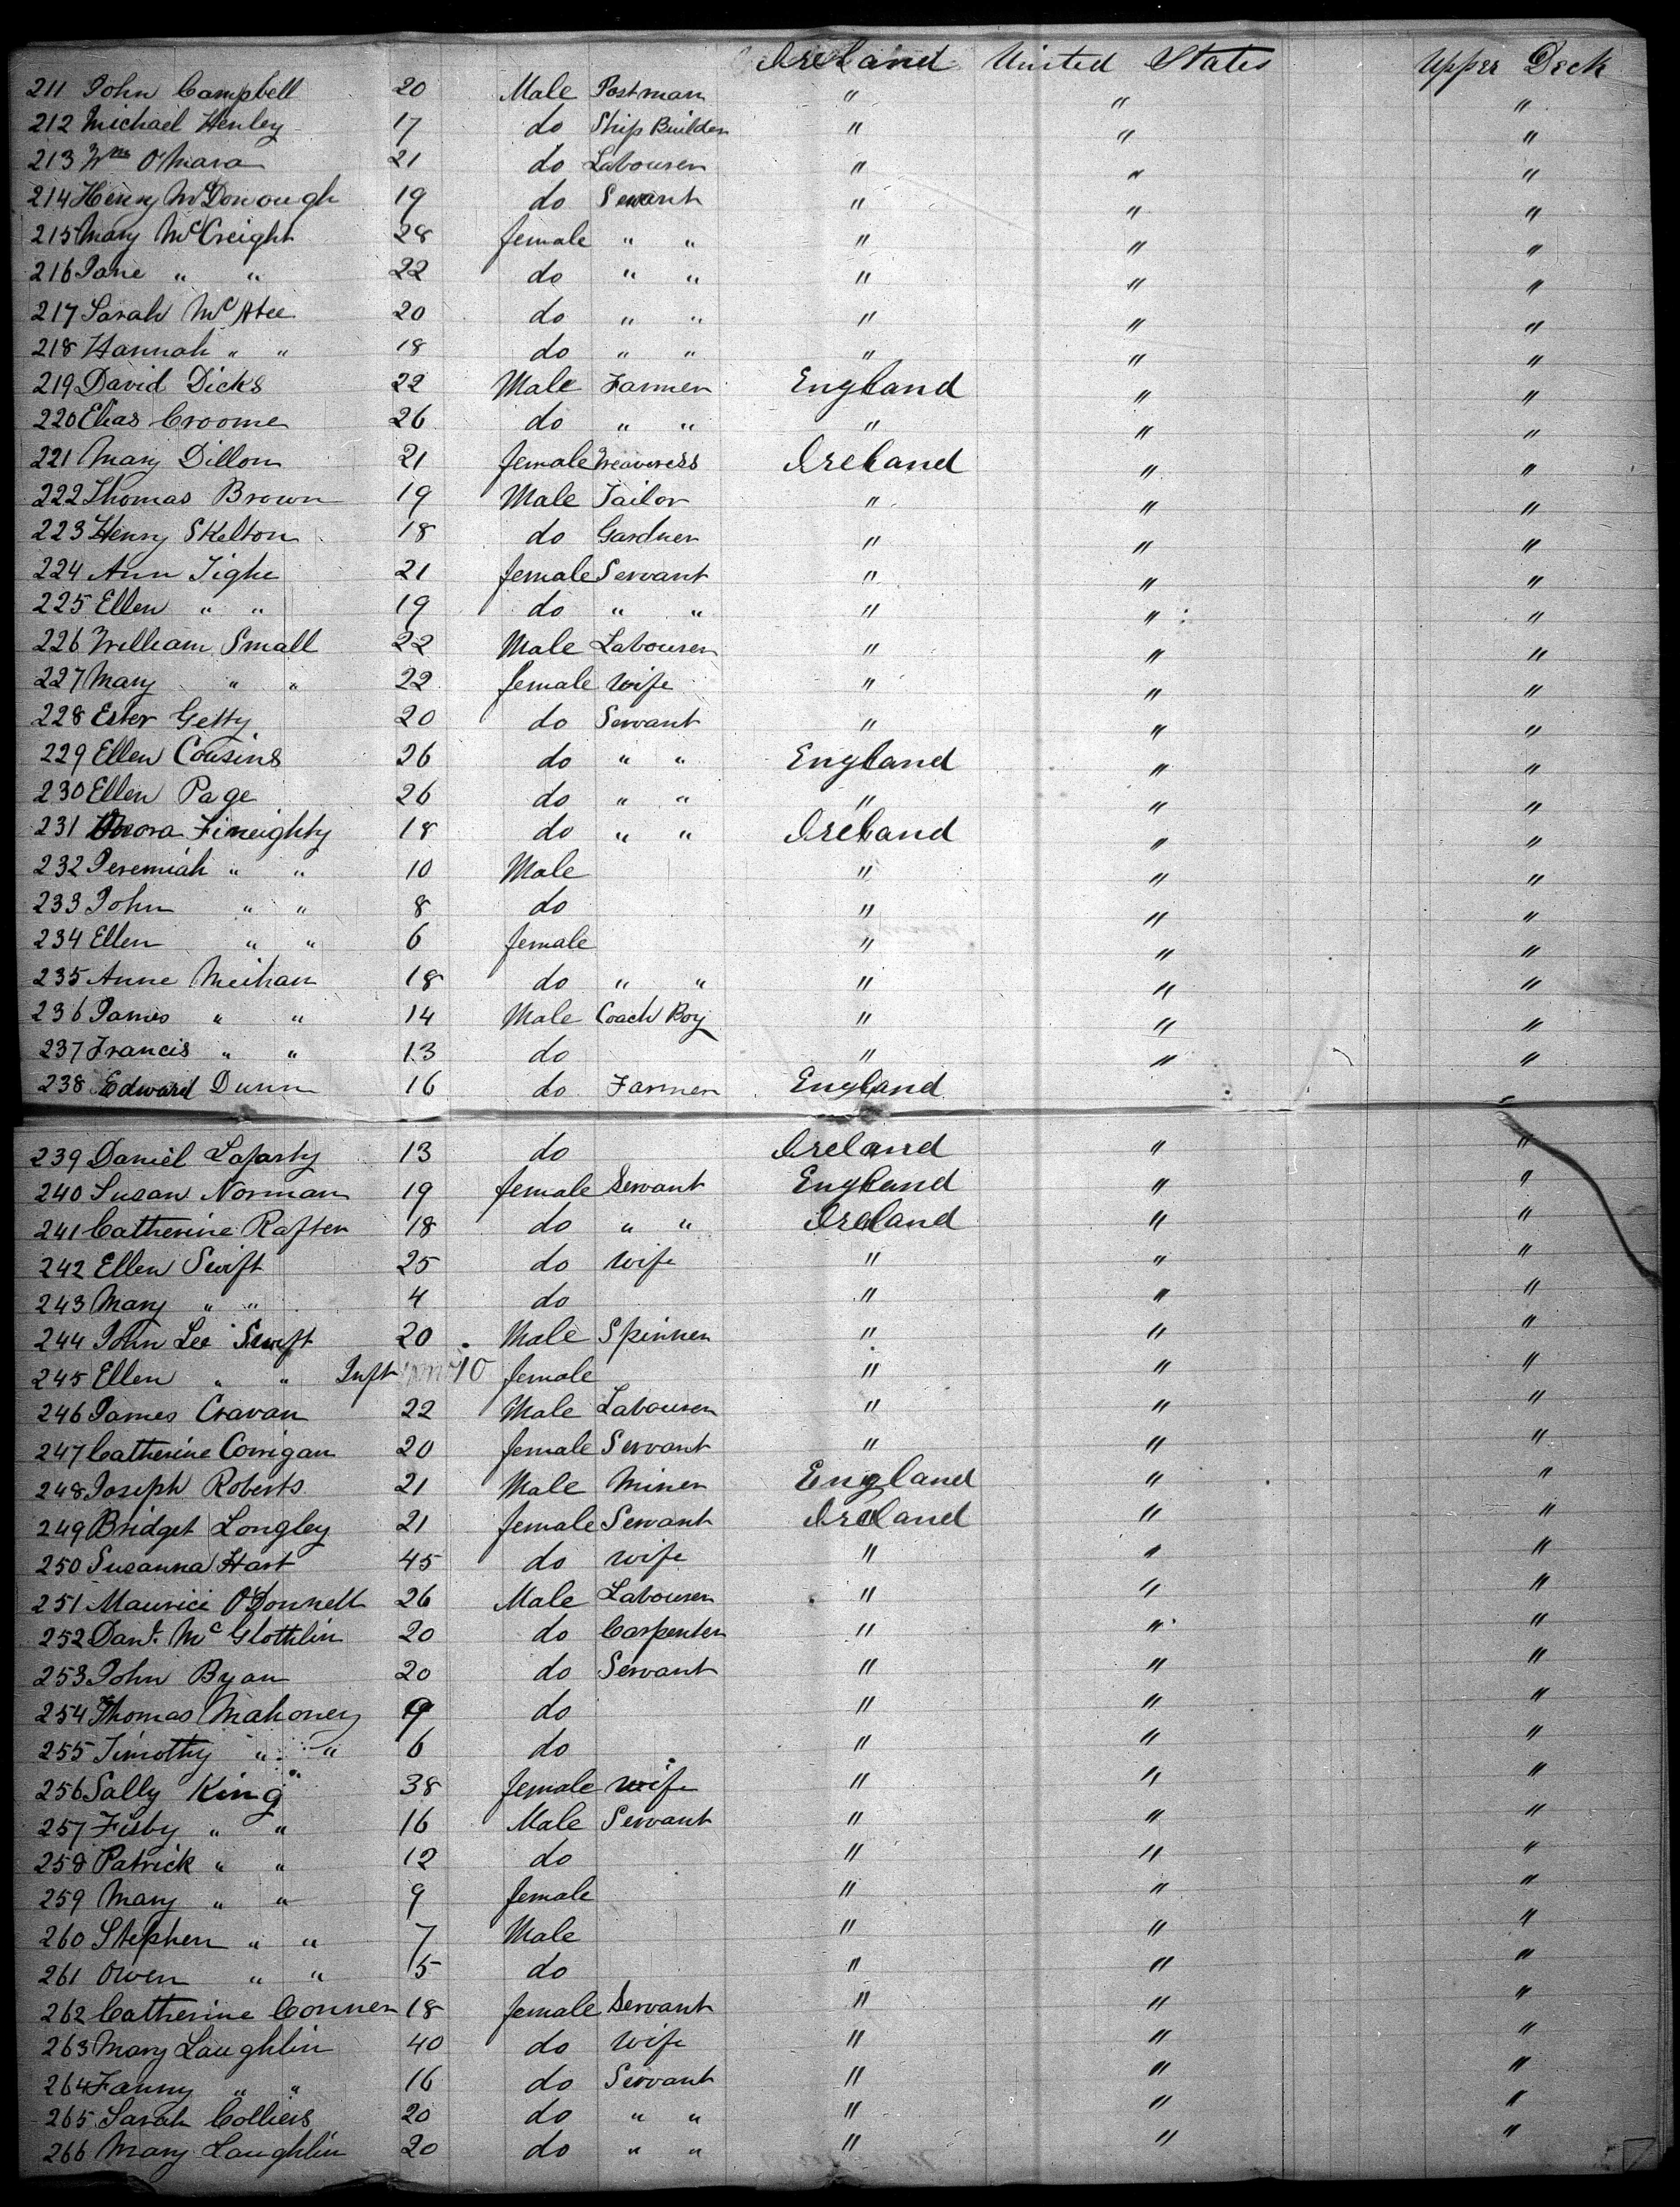 Ireland United States Upper Deck
211 John Campbell 20 Male Postman " " "
212 Michael Henley 17 do Ship Builder " " "
213 Wm O'Mara 21 do Labourer " " "
214 Henry McDonough 19 do Servant " " "
215 Mary McCreight 28 female " " " " "
216 Jane " " 22 do " " " " "
217 Sarah McAtee 20 do " " " " "
218 Hannah " " 18 do " " " " "
219 David Dicks 22 Male Farmer England " "
220 Elias Croome 26 do " " " " "
221 Mary Dillon 21 female Weaveress Ireland " "
222 Thomas Brown 19 Male Tailor " " "
223 Henry Skelton 18 do Gardner " " "
224 Ann Tighe 21 female Servant " " "
225 Ellen " " 19 do " " " " "
226 William Small 22 Male Labourer " " "
227 Mary " " 22 female wife " " "
228 Ester Getty 20 do Servant " " "
229 Ellen Cousins 26 do " " England " "
230 Ellen Page 26 do " " " " "
231 Fineighty 18 do " " Ireland " "
232 Jeremiah " " 10 Male " " "
233 John " " 8 do " " "
234 Ellen " " 6 female " " "
235 Anne Meihan 18 do " " " " "
236 James " " 14 Male Coach Boy " " "
237 Francis " " 13 do " " "
238 Edward Dunn 16 do Farmer England "
239 Daniel Lafarty 13 do Ireland " "
240 Susan Norman 19 female Servant England " "
241 Catherine Rafter 18 do " " Ireland " "
242 Ellen Swift 25 do wife " " "
243 Mary " " 4 do " " "
244 John Lee Swift 20 Male Spinner " " "
245 Ellen " " Inft 10 female " " "
246 James Cravan 22 Male Labourer " " "
247 Catherine Corrigan 20 female Servant " " "
248 Joseph Roberts 21 Male Miner England " "
249 Bridget Longley 21 female Servant Ireland " "
250 Susanna Hart 45 do wife " " "
251 Maurice O'Donnell 26 Male Labourer " " "
252 Danl. McGlothlin 20 do Carpenter " " "
253 John Byan 20 do Servant " " "
254 Thomas Mahoney 9 do " " "
255 Timothy " " 6 do " " "
256 Sally King 38 female wife " " "
257 " " 16 Male Servant " " "
258 Patrick " " 12 do " " "
259 Mary " " 9 female " " "
260 Stephen " " 7 Male " " "
261 Owen " " 5 do " " "
262 Catherine Conner 18 female Servant " " "
263 Mary Laughlin 40 do wife " " "
264 Fanny " " 16 do Servant " " "
265 Sarah Colliers 20 do " " " " "
266 Mary Laughlin 20 do " " " " "